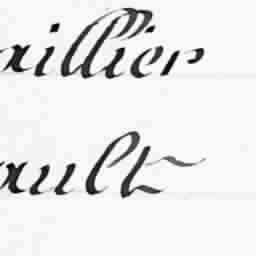 aillier
ault